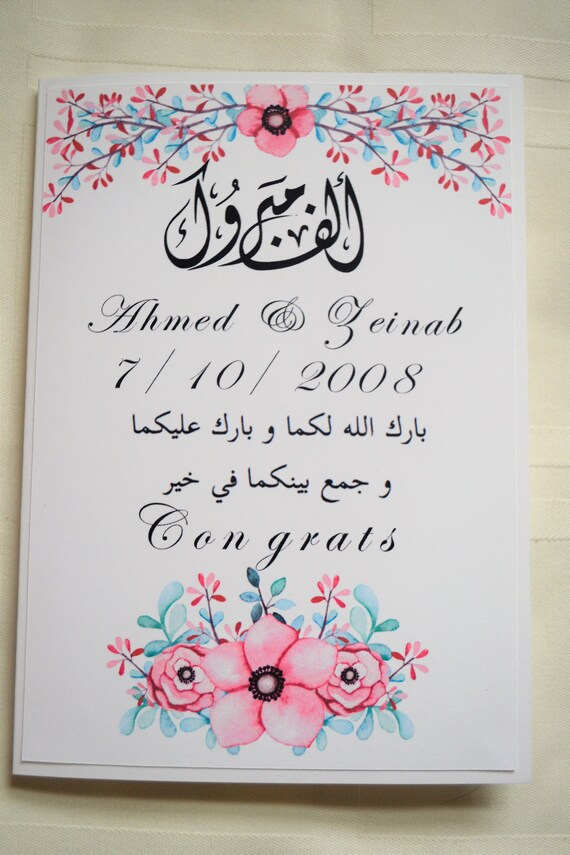 ألف مبروك
Ahmed & Zeinab
7/10/2008
بارك الله لكما و بارك عليكما
و جمع بينكما في خير
Congrats